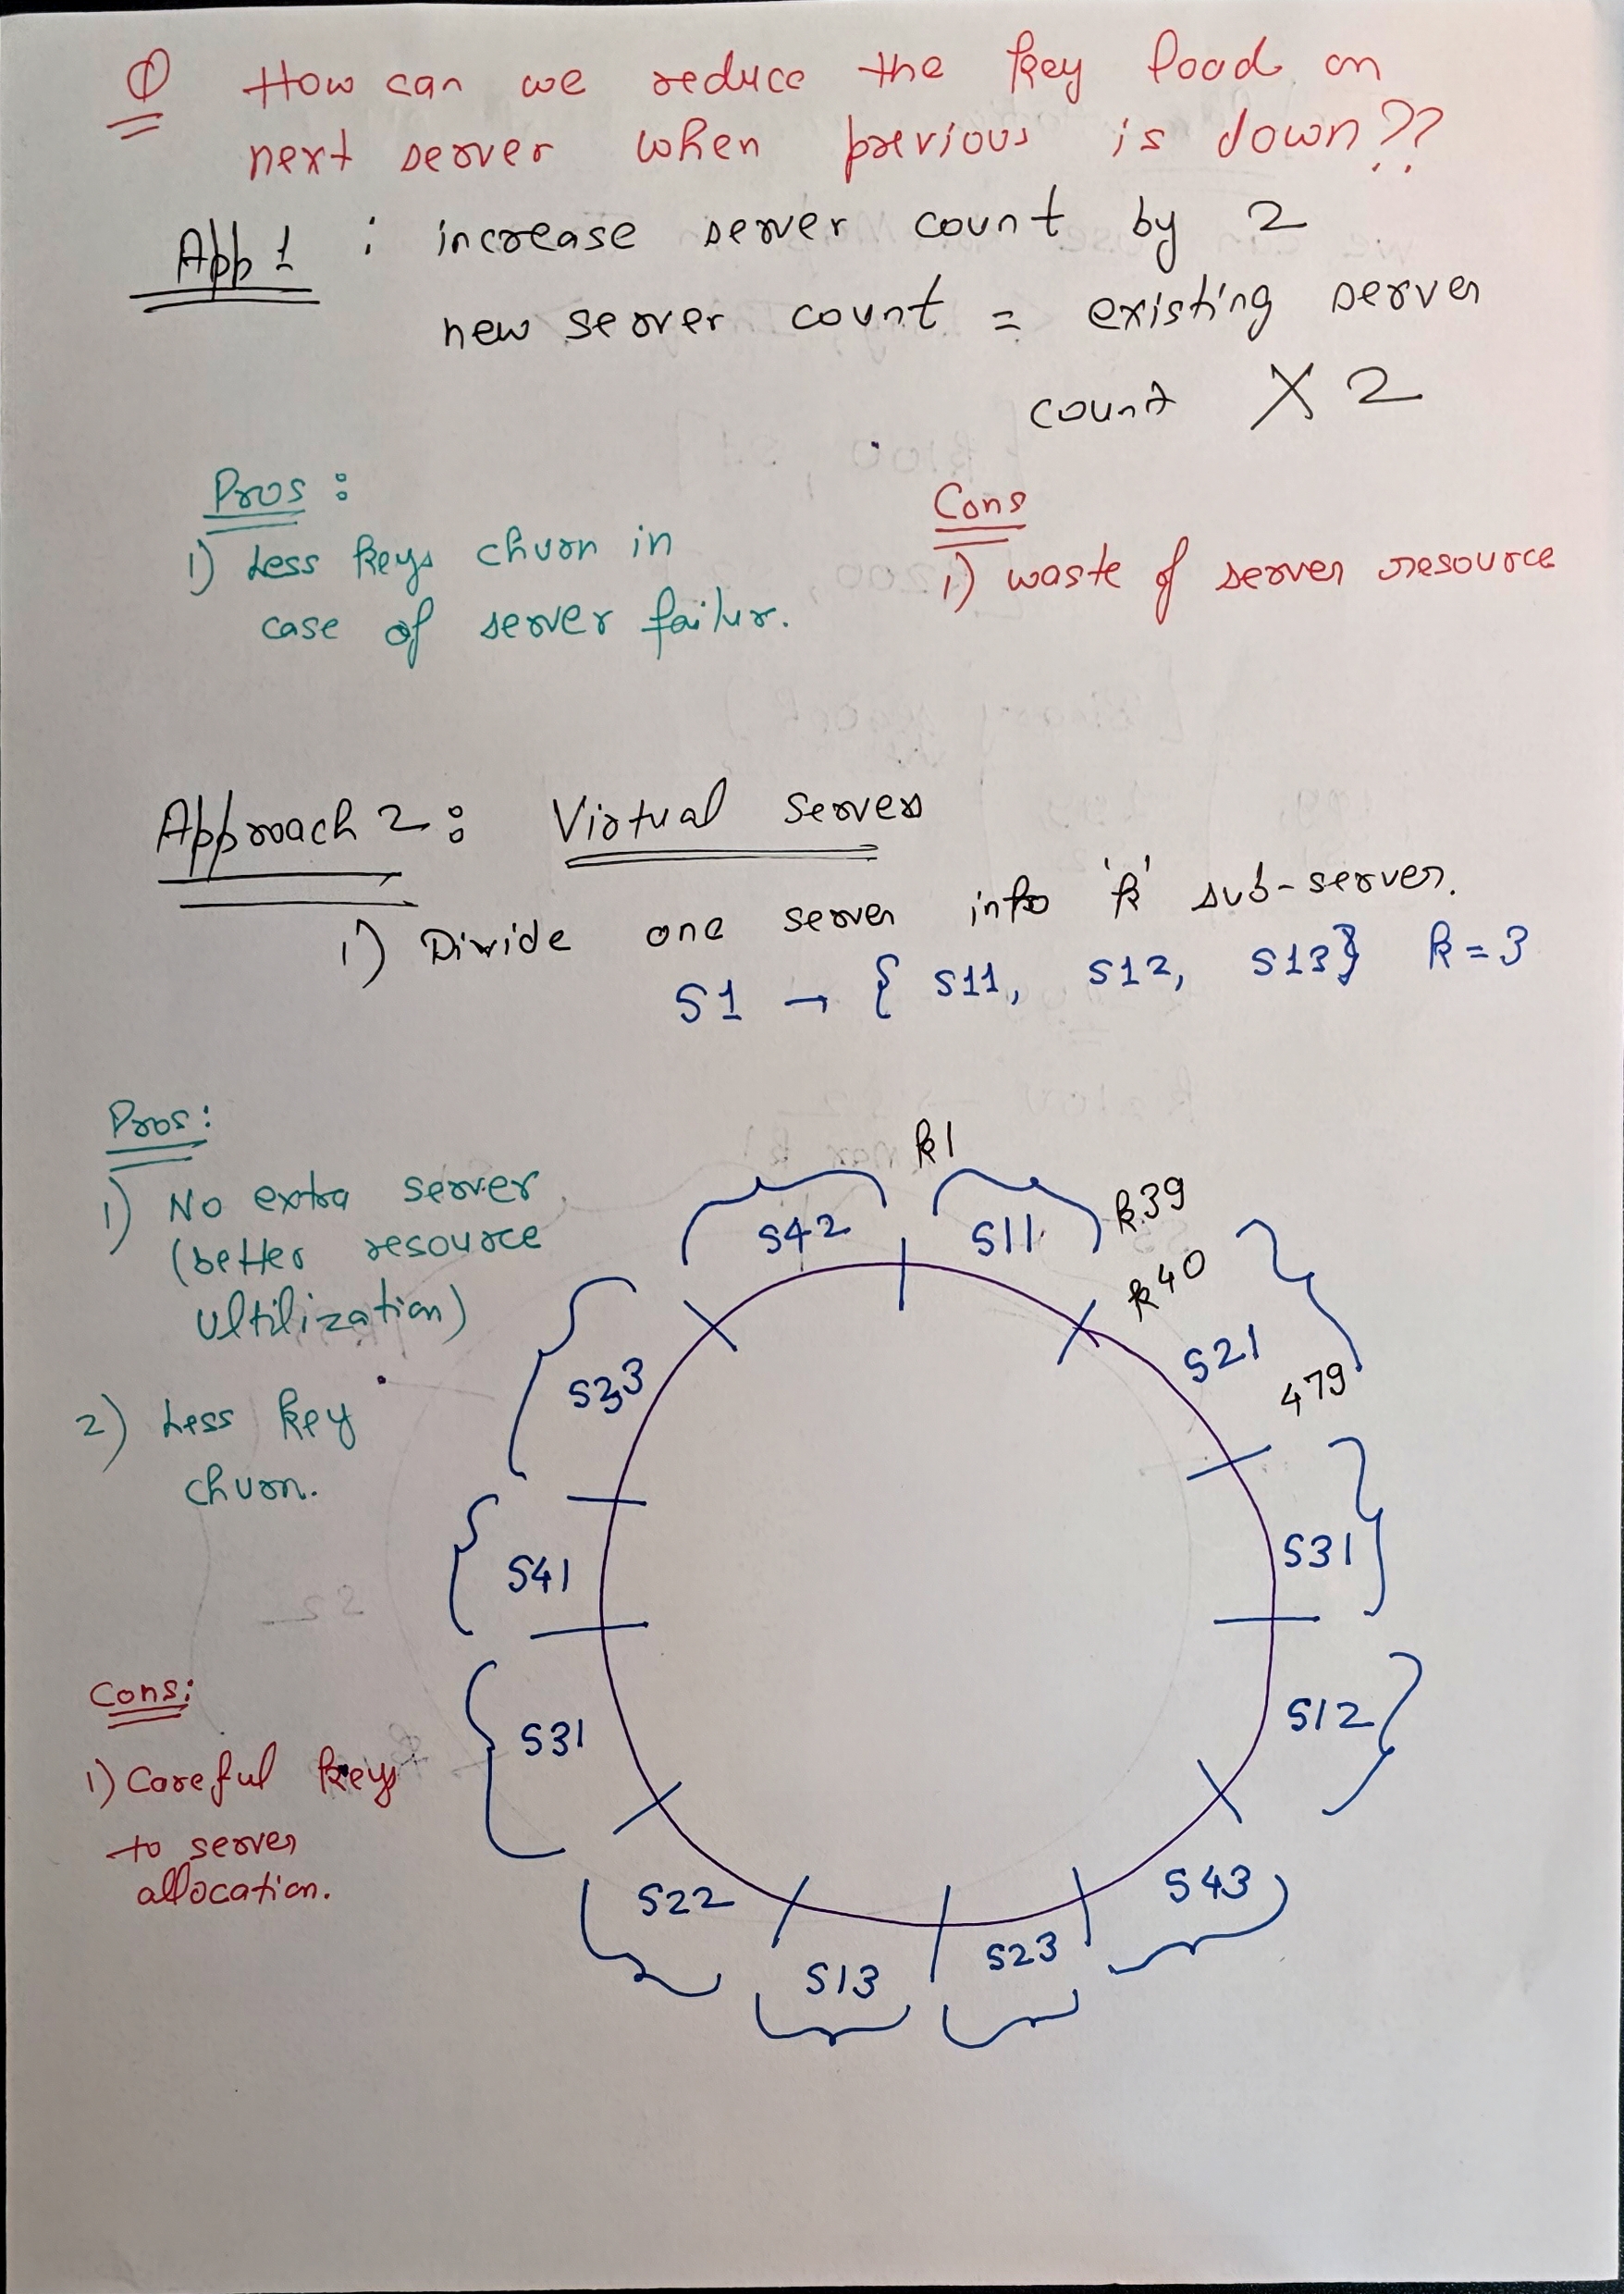 Q How can we reduce the key load on
next server when previous is down??
App 1 : increase server count by 2
new server count = existing server
count X 2
Pros :
1) Less keys churn in
case of server failur.
Cons
1) waste of server resource
Approach 2 : Virtual Servers
1) Divide one server into 'k' sub-server.
S1 → { S11, S12, S13} k = 3
Pros :
1) No extra server
(better resource
ultilization)
2) Less key
churn.
Cons:
1) Careful keys
to server
allocation.
k1
S42
S11
k39
k40
S21
479
S31
S12
S43
S23
S13
S22
S31
S41
S33